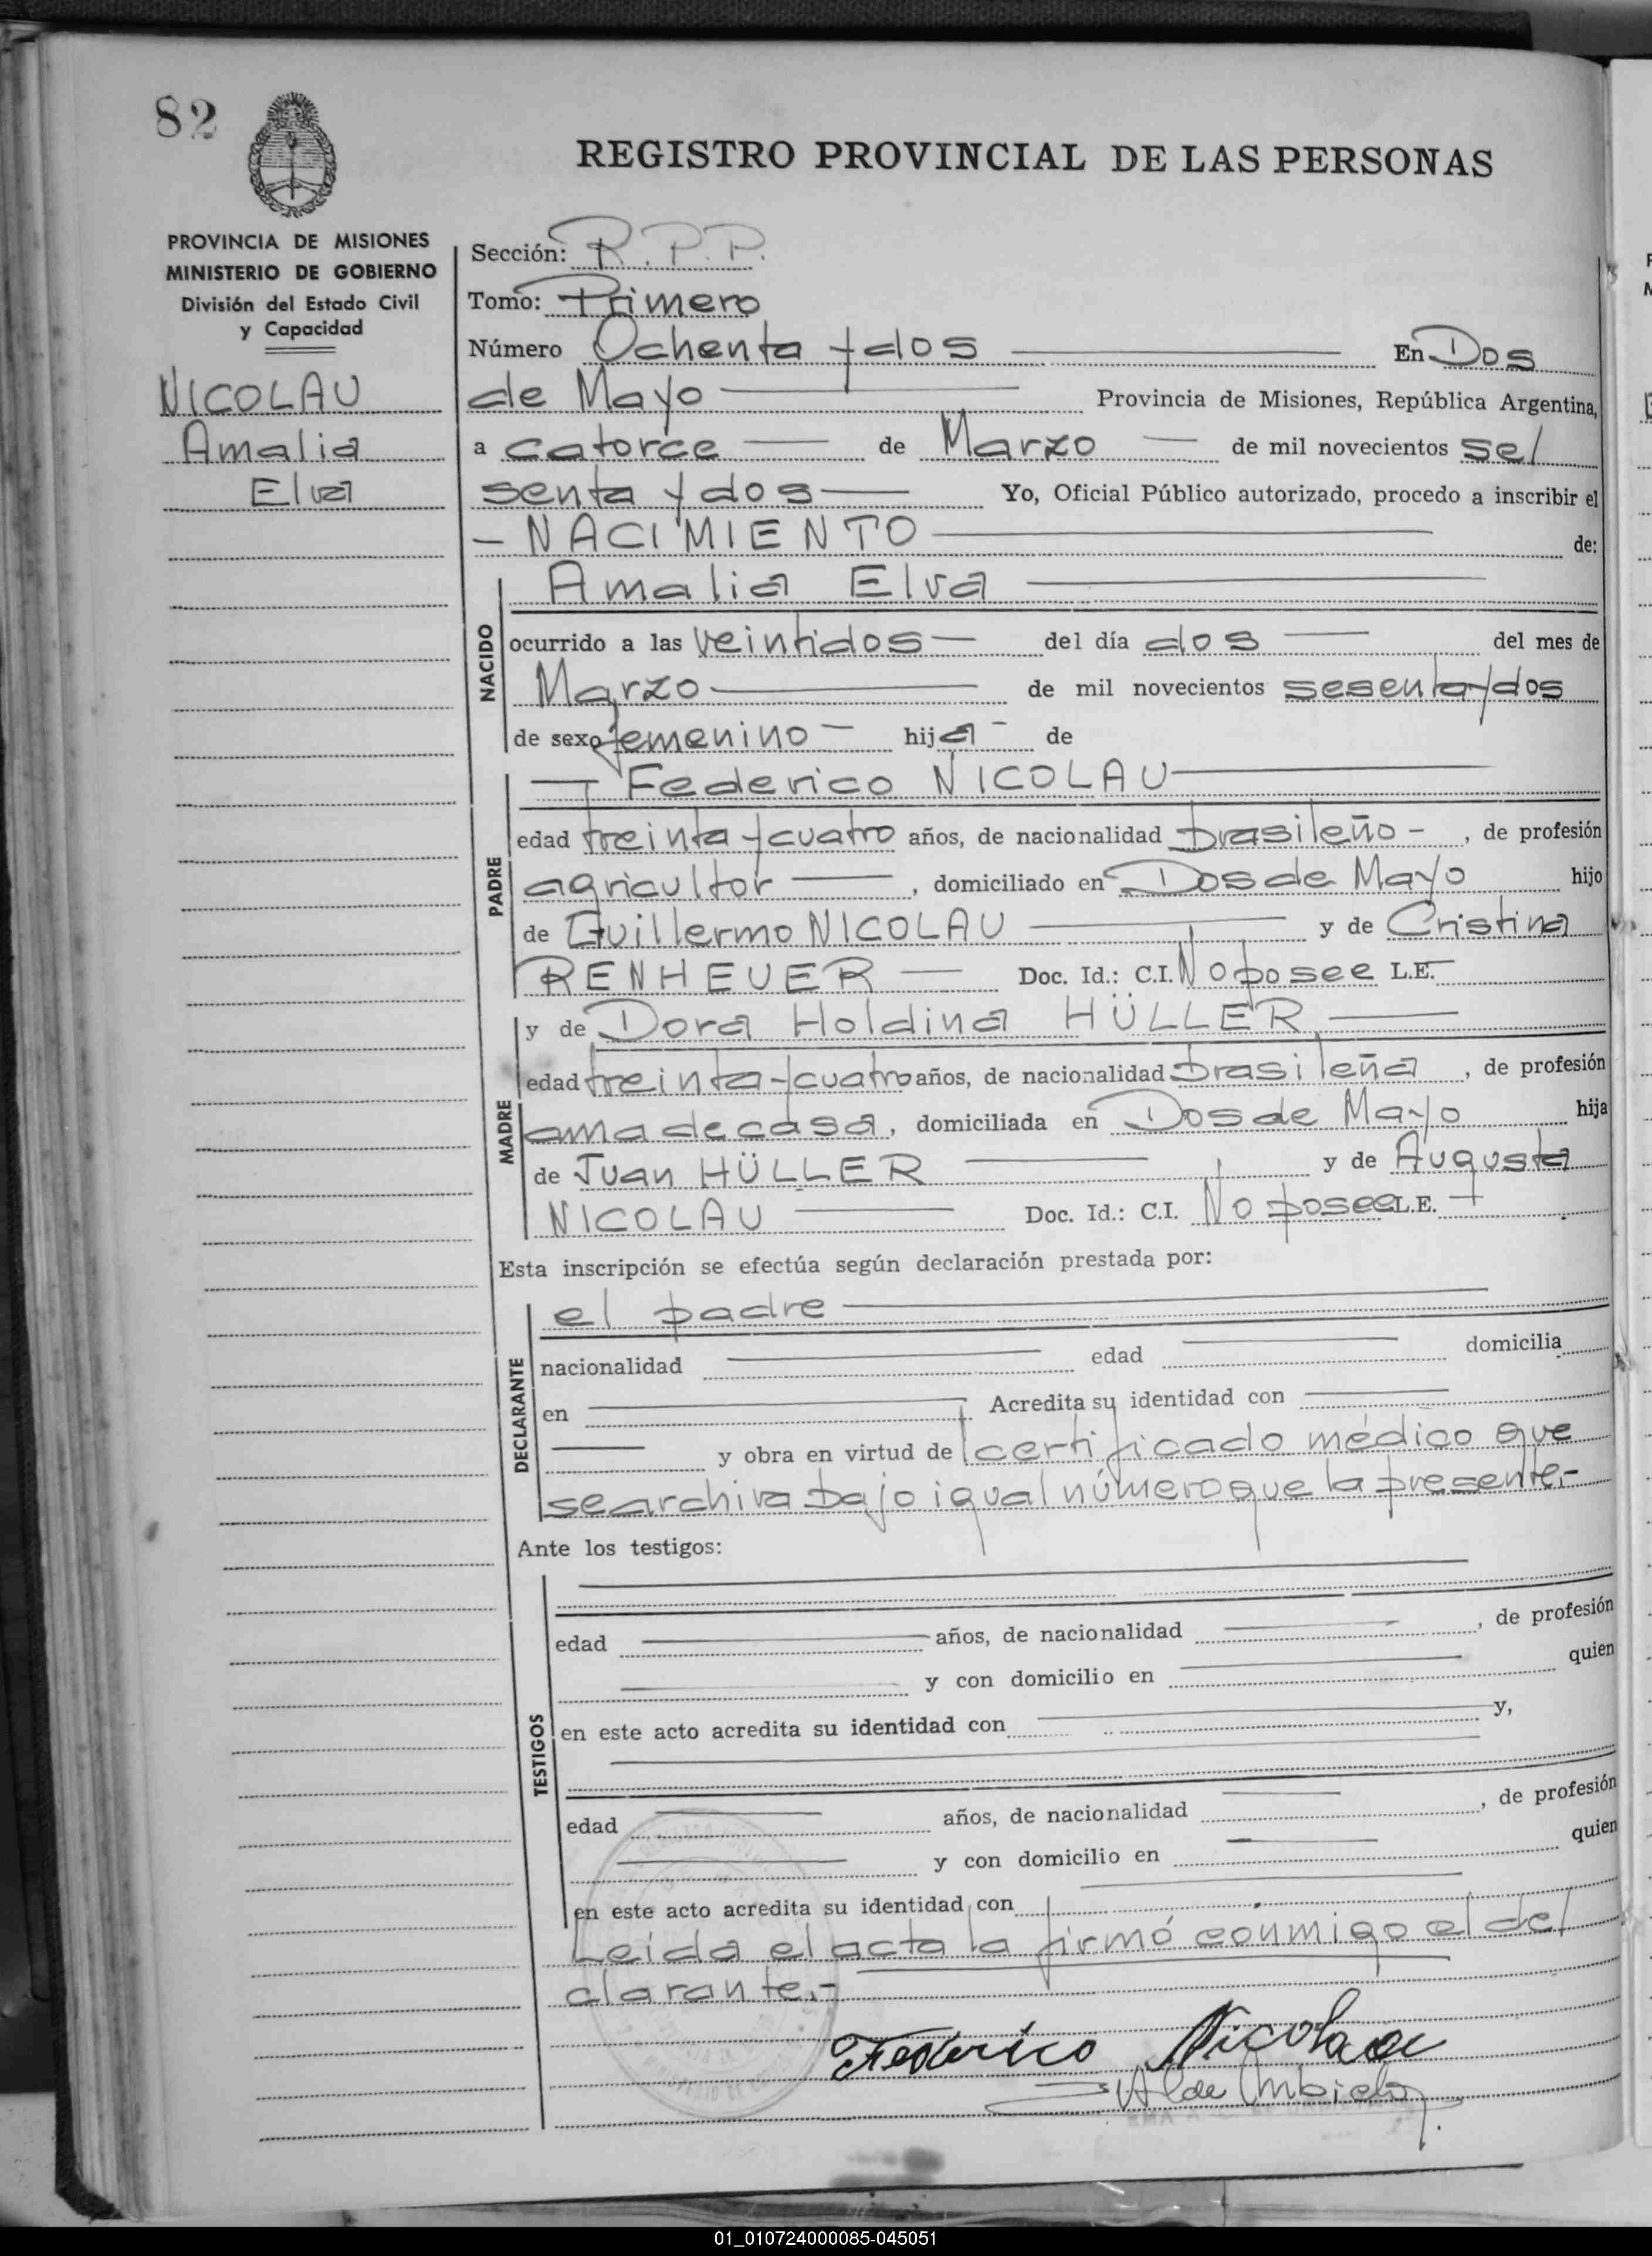 82
REGISTRO PROVINCIAL DE LAS PERSONAS
PROVINCIA DE MISIONES
MINISTERIO DE GOBIERNO
División del Estado Civil
y Capacidad
NICOLAU
Amalia
Elva
Sección: R.P.P.
Tomo: Primero
Número Ochenta y dos En Dos
de Mayo Provincia de Misiones, República Argentina,
a catorce de Marzo de mil novecientos se/
senta y dos Yo, Oficial Público autorizado, procedo a inscribir el
- NACIMIENTO de:
NACIDO
Amalia Elva
ocurrido a las veintidos del día dos del mes de
Marzo de mil novecientos sesenta y dos
de sexo femenino hija de
PADRE
Federico NICOLAU
edad treinta y cuatro años, de nacionalidad brasileño -, de profesión
agricultor, domiciliado en Dos de Mayo hijo
de Guillermo NICOLAU y de Cristina
RENHEUER Doc. Id.: C.I. No posee L.E.
MADRE
y de Dora Holdina HÜLLER
edad treinta y cuatro años, de nacionalidad brasileña, de profesión
ama de casa, domiciliada en Dos de Mayo hija
de Juan HÜLLER y de Augusta
NICOLAU Doc. Id.: C.I. No posee L.E.
Esta inscripción se efectúa según declaración prestada por:
DECLARANTE
el padre
nacionalidad edad domicilia
en Acredita su identidad con
y obra en virtud de certificado médico que
se archiva bajo igual número que la presente.-
Ante los testigos:
TESTIGOS
edad años, de nacionalidad , de profesión
y con domicilio en quien
en este acto acredita su identidad con y,
edad años, de nacionalidad , de profesión
y con domicilio en quien
en este acto acredita su identidad con
Leida el acta la firmó conmigo el de/
clarante.-
Federico Nicolau
01_010724000085-045051